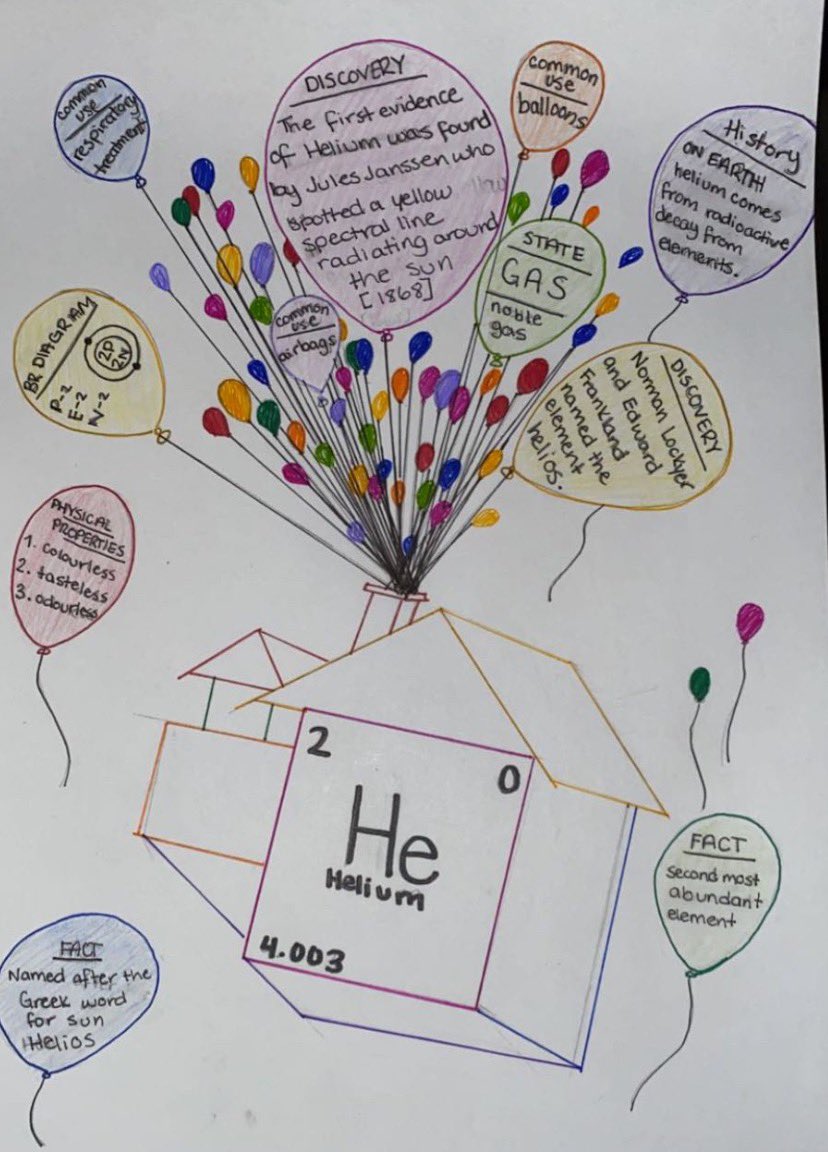 common
use
respiratory
treatment
DISCOVERY
The first evidence
of Helium was found
by Jules Janssen who
spotted a yellow
spectral line
radiating around
the sun
[1868]
common
use
balloons
History
ON EARTH
helium comes
from radioactive
decay from
elements.
STATE
GAS
noble
gas
common
use
airbags
BR DIAGRAM
P-2
E-2
N-2
2P
2N
DISCOVERY
Norman Lockyer
and Edward
Frankland
named the
element
helios.
PHYSICAL
PROPERTIES
1. colourless
2. tasteless
3. odourless
2
0
He
Helium
4.003
FACT
second most
abundant
element
FACT
Named after the
Greek word
for sun
Helios